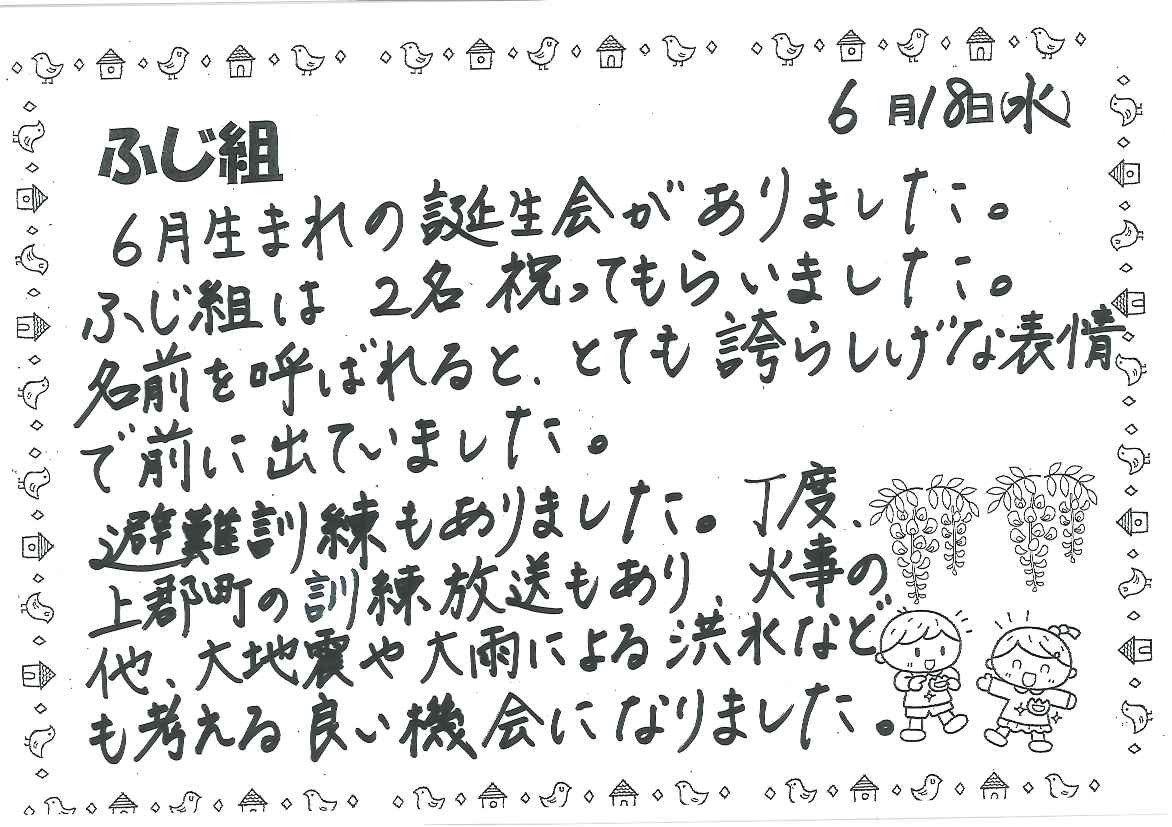 6月18日(水)
ふじ組
6月生まれの誕生会がありました。
ふじ組は2名祝ってもらいました。
名前を呼ばれると、とても誇らしげな表情
で前に出ていました。
避難訓練もありました。丁度、
上郡町の訓練放送もあり、火事の
他、大地震や大雨による洪水など
も考える良い機会になりました。